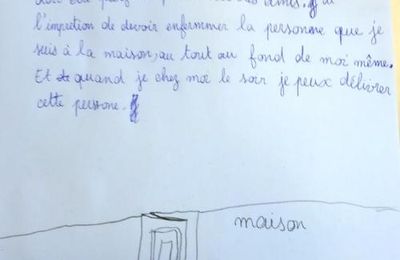 des amis. J'ai
l'impretion de devoir enfermmer la personne que je
suis à la maison, au tout au fond de moi même.
Et quand je chez moi le soir je peux délivrer
cette persone.
maison